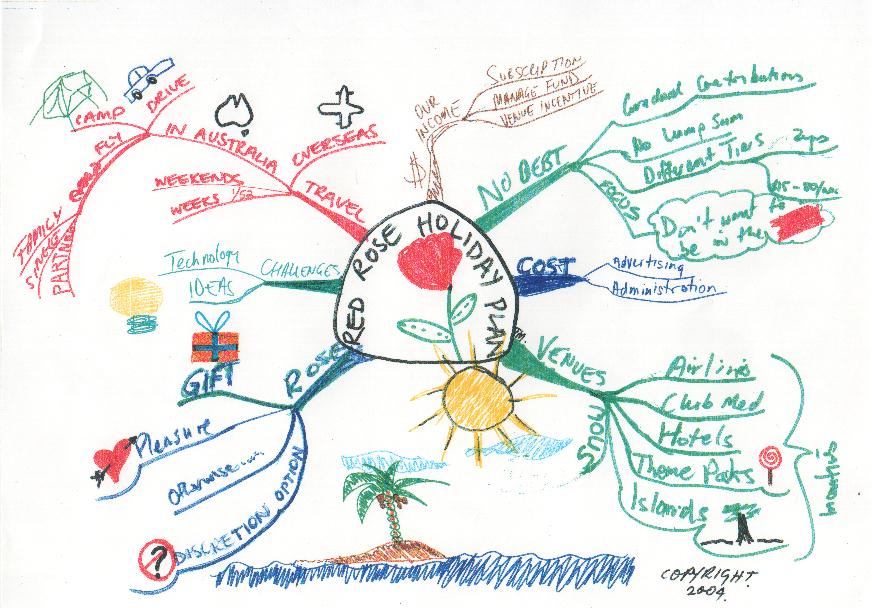 RED ROSE HOLIDAY PLAN
TM.
OUR
INCOME
$
SUBSCRIPTION
MANAGE FUND
VENUE INCENTIVE
NO DEBT
Gradual Contributions
No Lump Sum
Different Tiers
FOCUS
Don't want to
be in the
COST
Advertising
Administration
VENUES
Airlines
Club Med
Hotels
Theme Paks
Islands
SNOW
Incentivs
TRAVEL
OVERSEAS
IN AUSTRALIA
DRIVE
CAMP
FLY
FAMILY
SINGLE
PARTNER
WEEKENDS
WEEKS
CHALLENGES
Technology
IDEAS
ROSE
GIFT
Pleasure
Otherwise
DISCRETION OPTION
?
COPYRIGHT
2004.